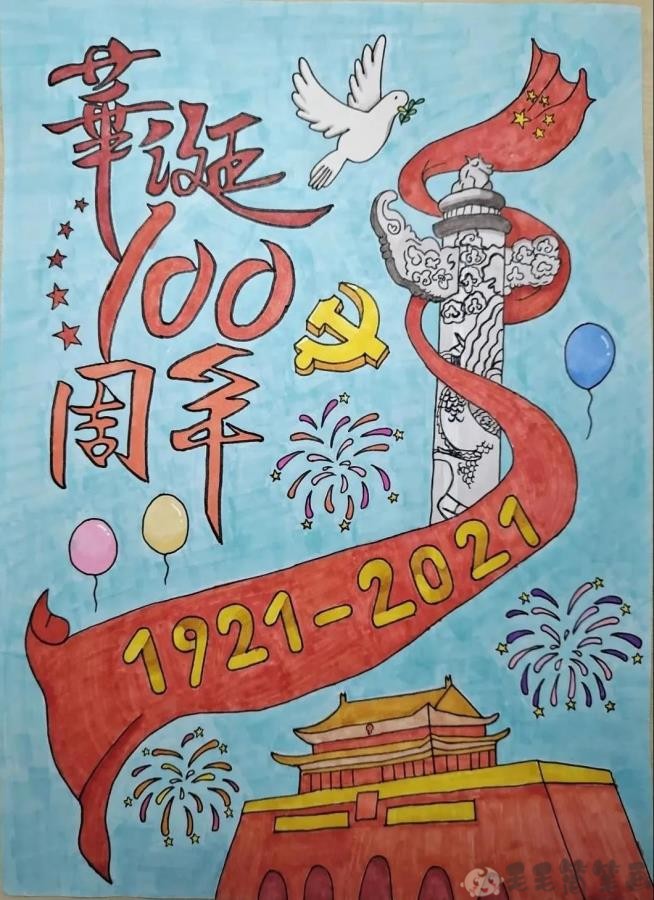 華诞
100
周年
1921-2021
毛毛简笔画